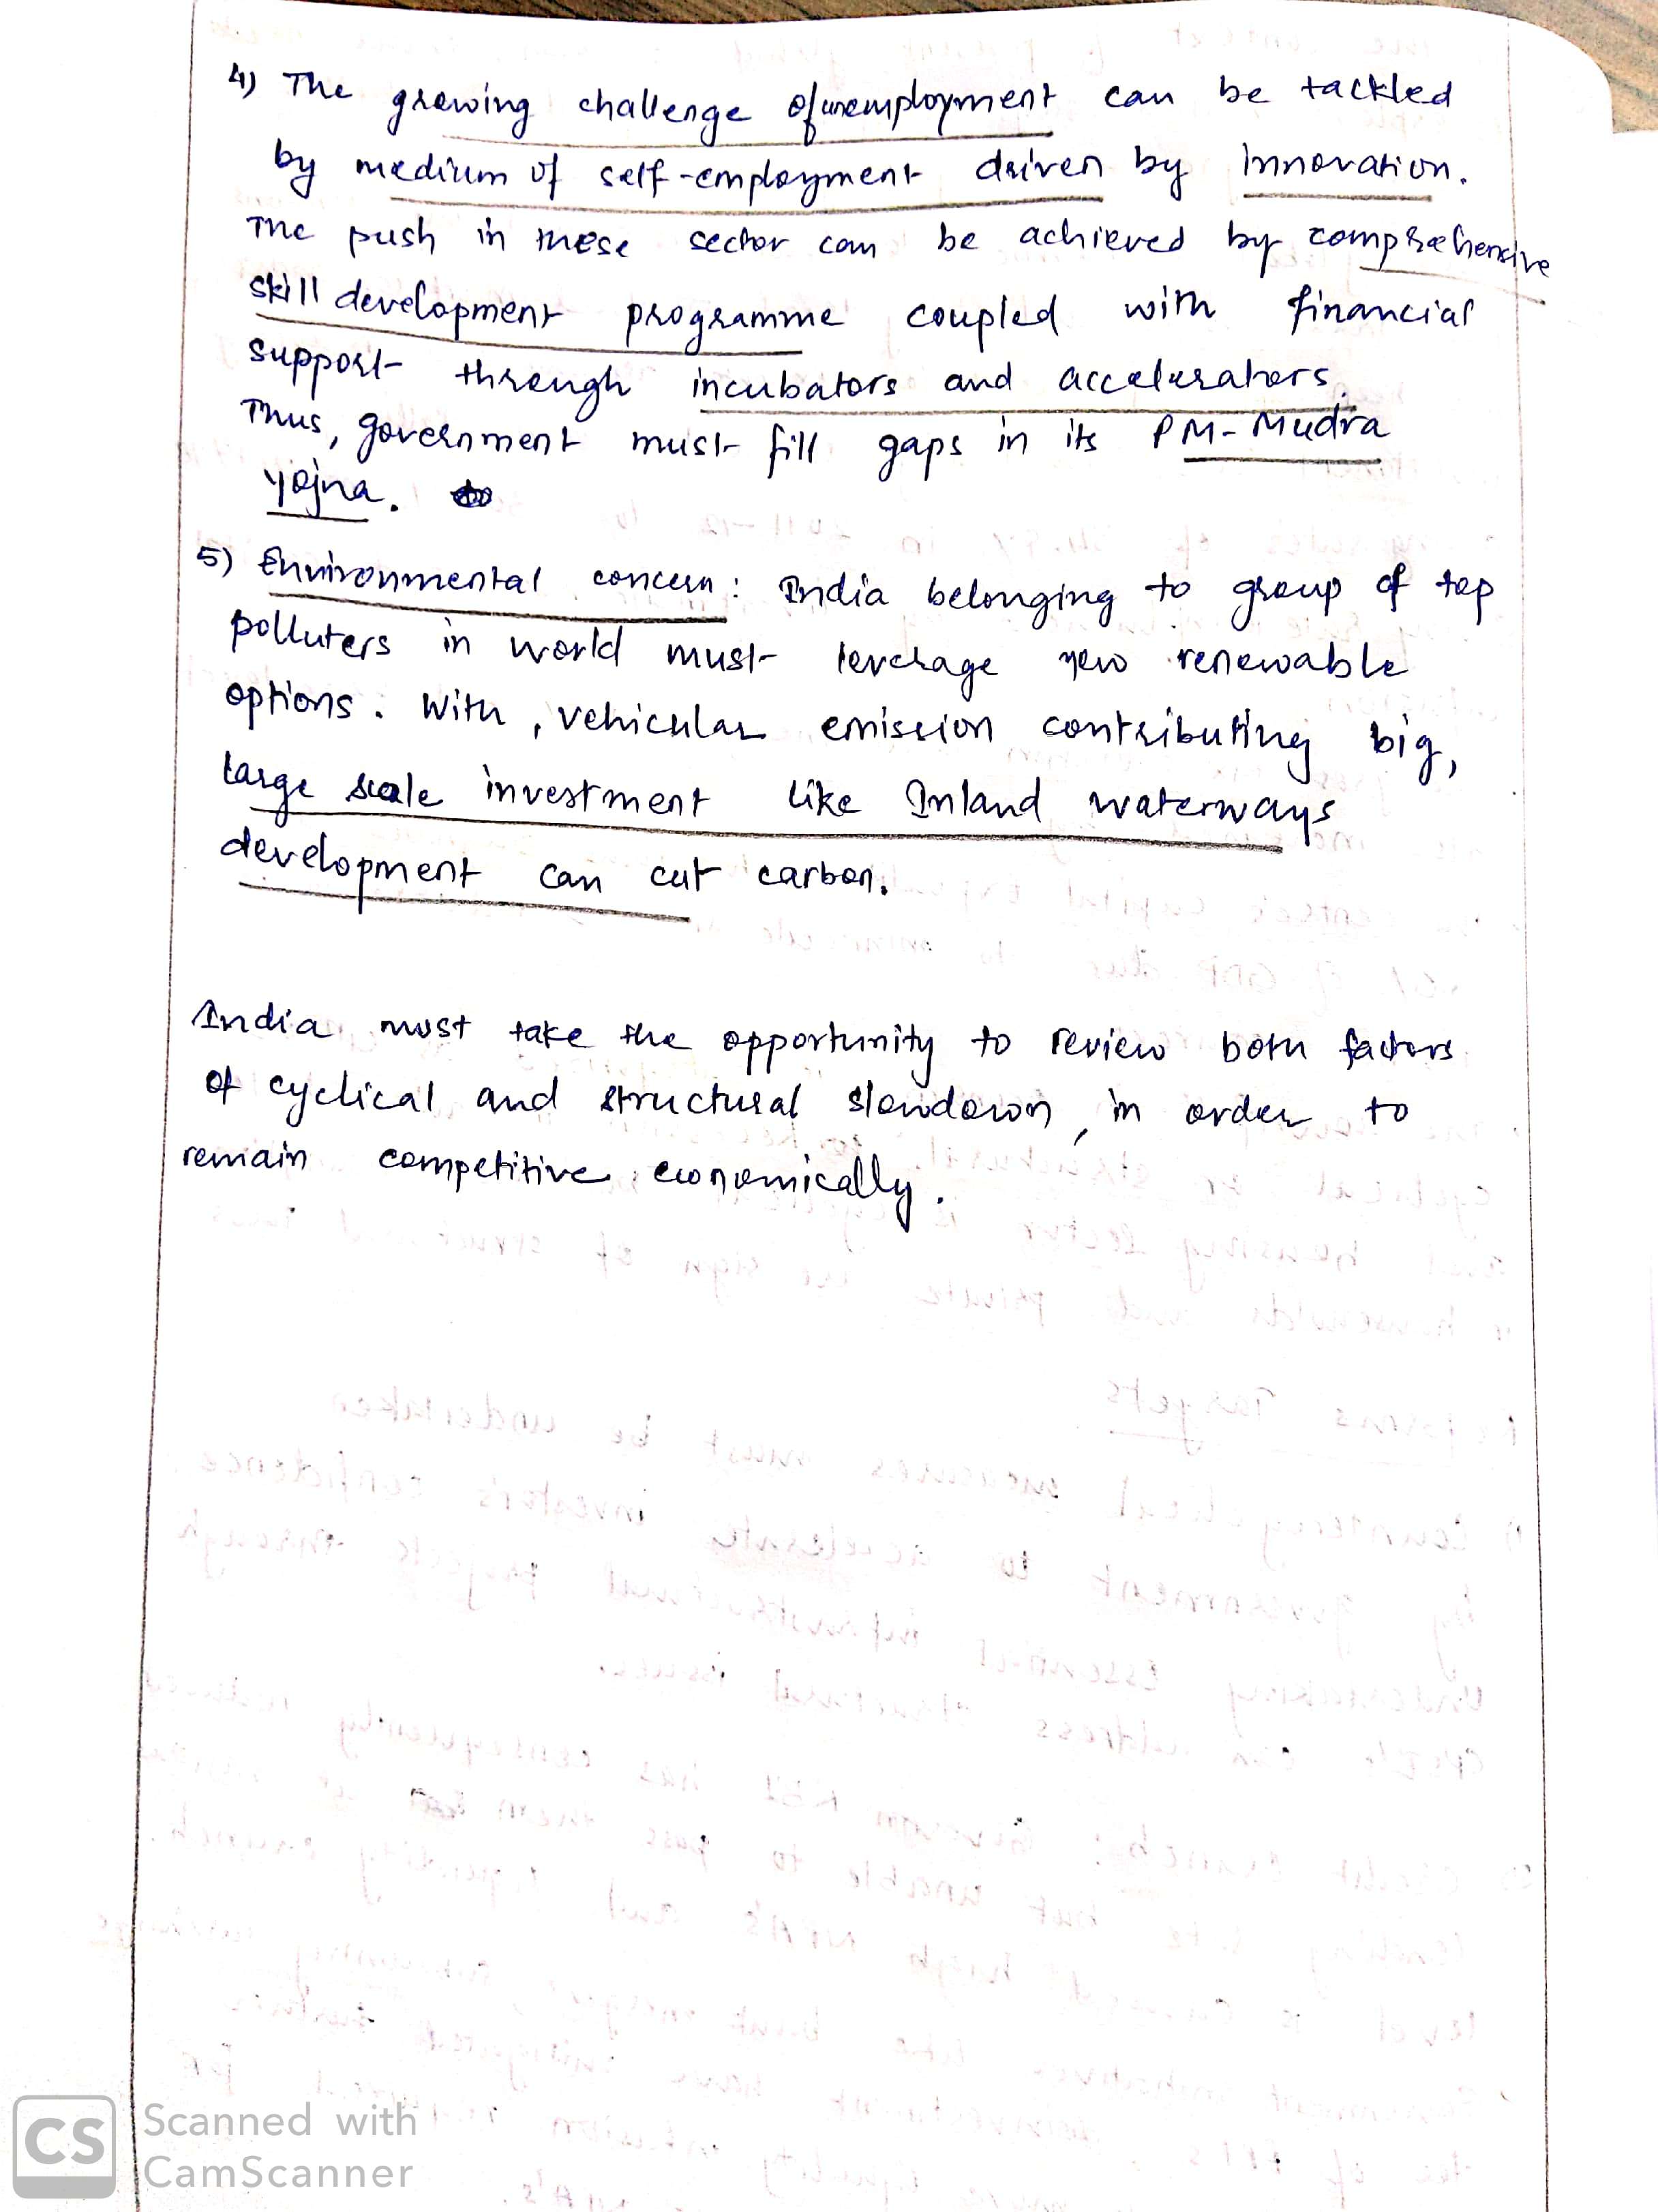 4) The growing challenge of unemployment can be tackled
by medium of self-employment driven by innovation.
The push in these sector can be achieved by comprehensive
skill development programme coupled with financial
support through incubators and accelerators.
Thus, government must fill gaps in its PM-Mudra
Yojna.
5) Environmental concern: India belonging to group of top
polluters in world must leverage new renewable
options. With, vehicular emission contributing big,
large scale investment like Inland waterways
development can cut carbon.
India must take the opportunity to review both factors
of cyclical and structural slowdown, in order to
remain competitive economically.
CS Scanned with
CamScanner